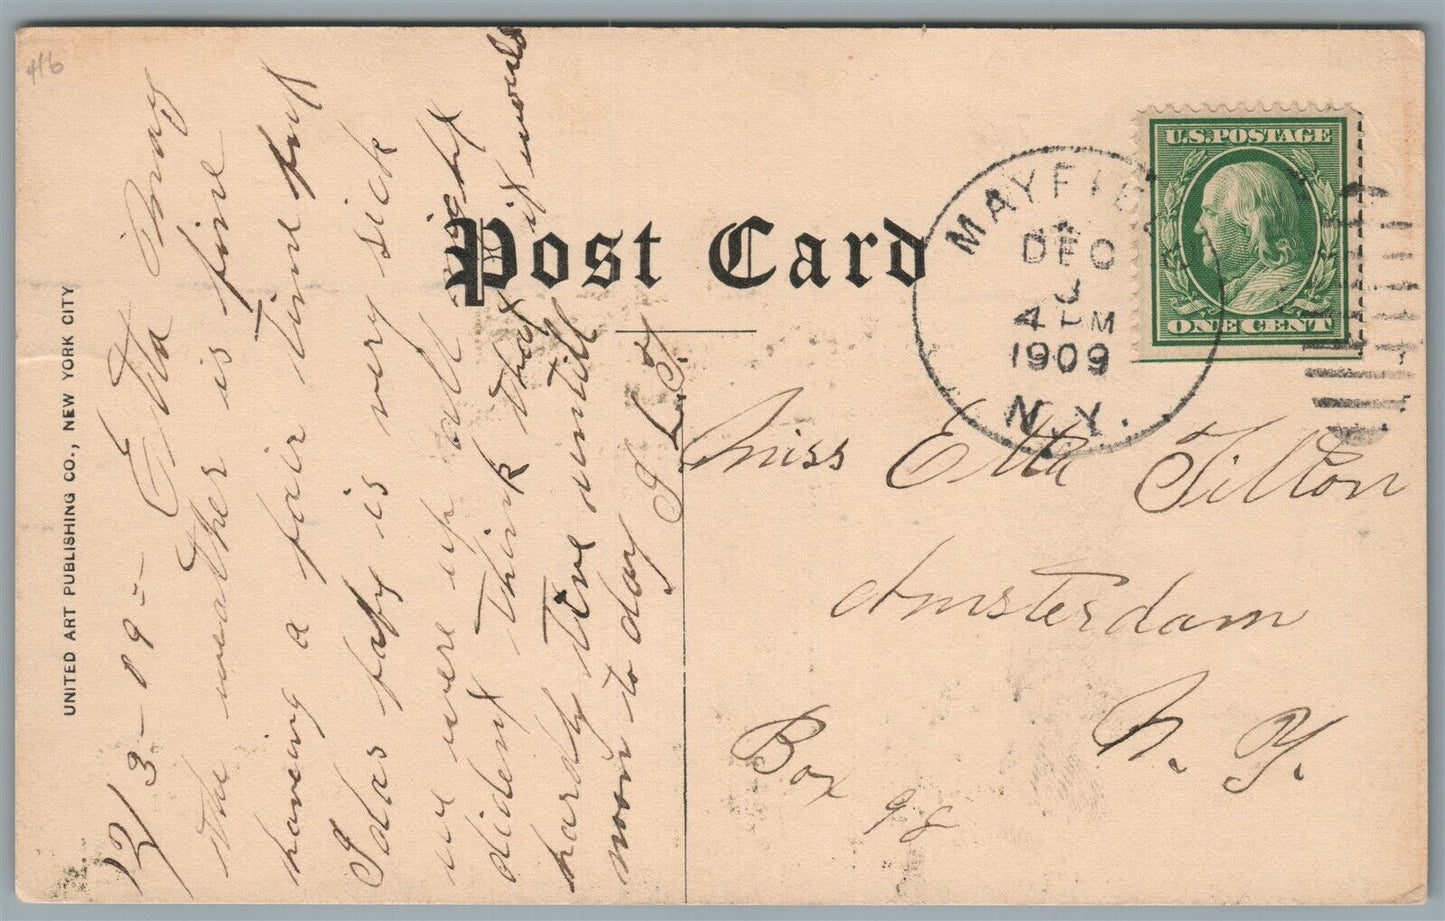 416
12/3-09- Etta May
The weather is fine
having a fair time but
Idas baby is very sick
we were up all night
dident think that it would
hardly live untill
noon to day
UNITED ART PUBLISHING CO., NEW YORK CITY
Post Card
MAYFIELD
DEC
3
4 PM
1909
N.Y.
U.S. POSTAGE
ONE CENT
Miss Etta Tilton
Amsterdam
N. Y.
Box 98